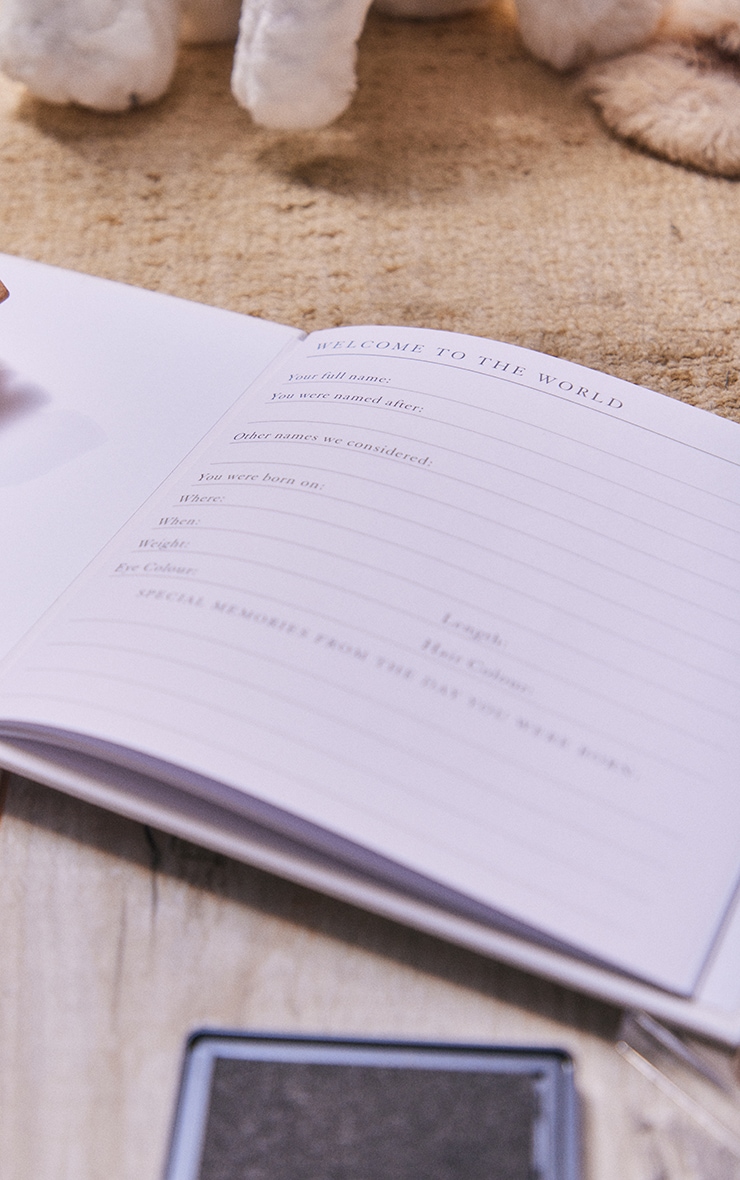 WELCOME TO THE WORLD
Your full name:
You were named after:
Other names we considered:
You were born on:
Where:
When:
Weight:
Length:
Eye Colour:
Hair Colour:
SPECIAL MEMORIES FROM THE DAY YOU WERE BORN: